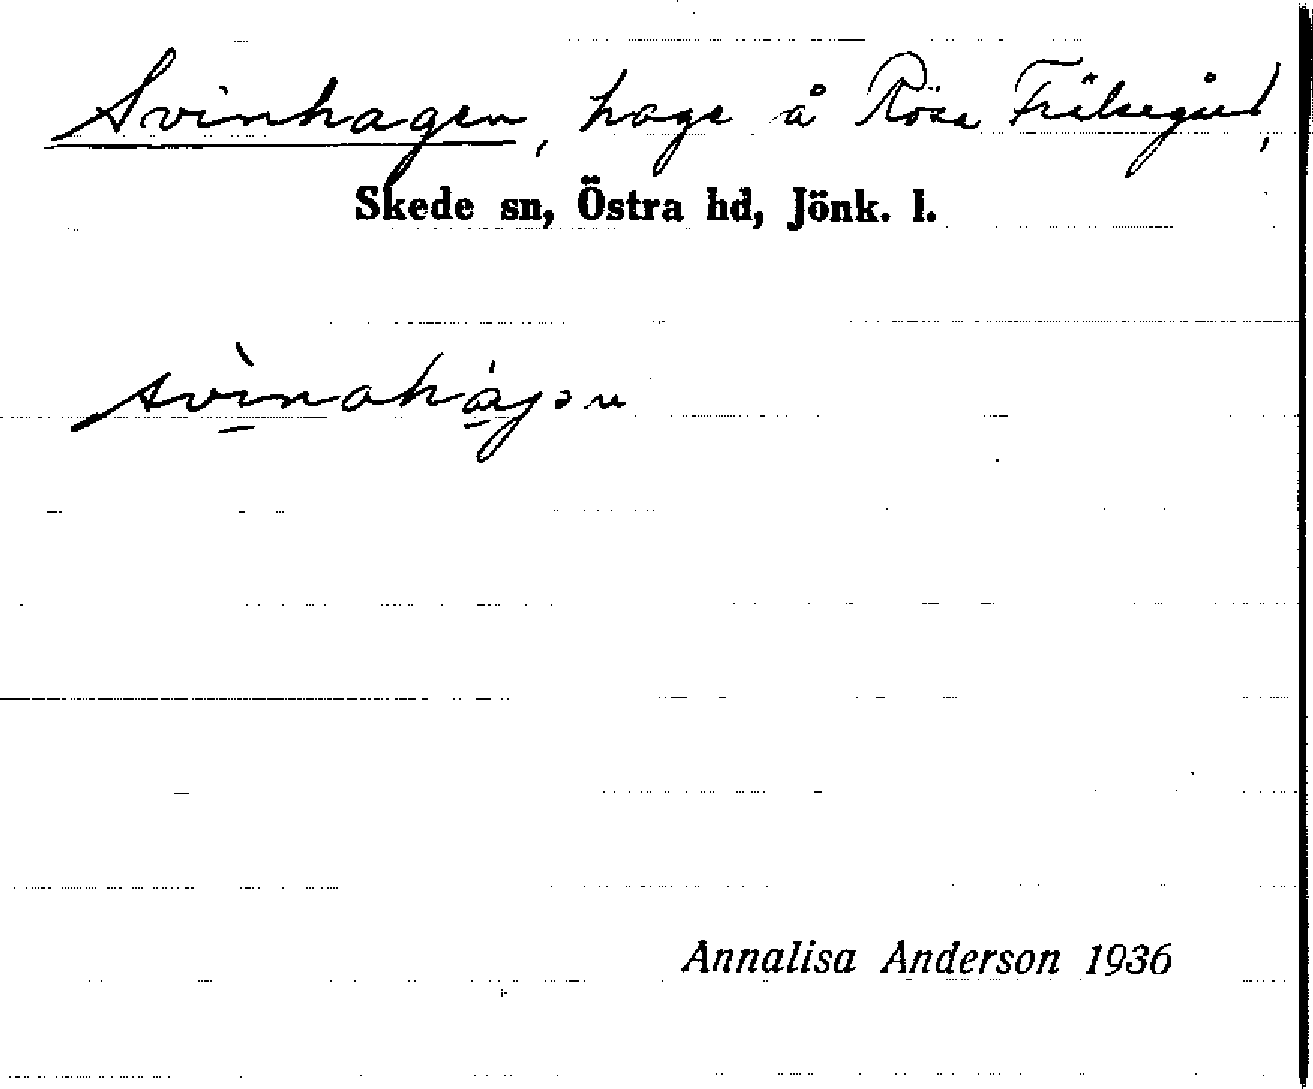 Svinhagen, hage å Rösa Frälsegård,
Skede sn, Östra hd, Jönk. l.
svìnahágən
Annalisa Anderson 1936